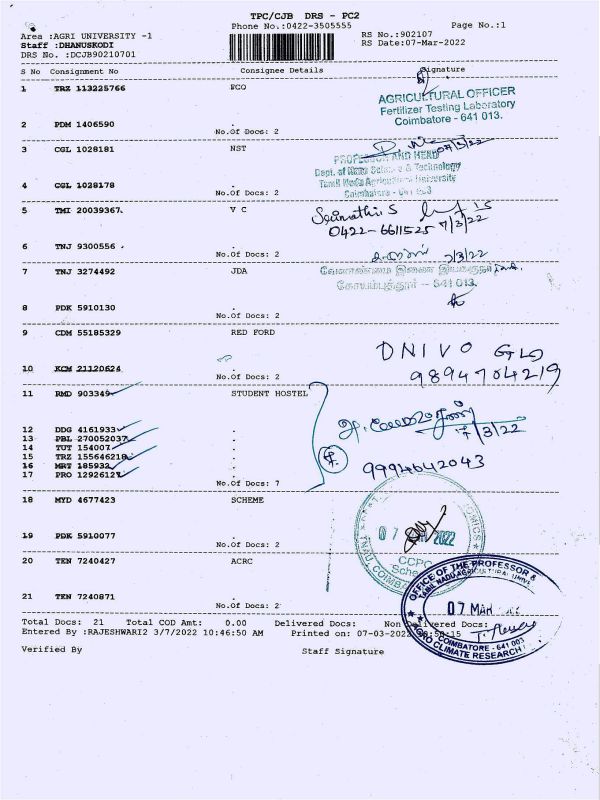 TPC/CJB DRS - PC2
Phone No.:0422-3505555
Page No.:1
Area :AGRI UNIVERSITY -1
RS No.:902107
Staff :DHANUSKODI
RS Date:07-Mar-2022
DRS No. :DCJB90210701
S No Consignment No Consignee Details Signature
1 TRZ 113225766 FCO
AGRICULTURAL OFFICER
Fertilizer Testing Laboratory
Coimbatore - 641 013.
2 PDM 1406590 .
No.Of Docs: 2
3 CGL 1028181 NST
07/3/22
PROFESSOR AND HEAD
Dept. of Nano Science & Technology
Tamil Nadu Agricultural University
Coimbatore - 641 003
4 CGL 1028178 .
No.Of Docs: 2
5 TMI 20039367. V C
0422-6611525 7/3/22
6 TNJ 9300556 . .
No.Of Docs: 2
7/3/22
7 TNJ 3274492 JDA
வேளாண்மை இணை இயக்குநர்
கோயம்புத்தூர் - 641 013.
8 PDK 5910130 .
No.Of Docs: 2
9 CDM 55185329 RED FORD
9894704219
10 KCM 21120624 .
No.Of Docs: 2
11 RMD 903349 STUDENT HOSTEL
7/3/22
12 DDG 4161933 .
13 PBL 270052037 .
14 TUT 154007 .
15 TRZ 155646218 .
16 MRT 185932 .
17 PRO 12926127 .
9994642043
No.Of Docs: 7
18 MYD 4677423 SCHEME
07 2022
CCPC
19 PDK 5910077 .
No.Of Docs: 2
20 TEN 7240427 ACRC
OFFICE OF THE PROFESSOR &
07 MAR
COIMBATORE - 641 003
AGRO CLIMATE RESEARCH
21 TEN 7240871 .
No.Of Docs: 2
Total Docs: 21 Total COD Amt: 0.00 Delivered Docs: Non Delivered Docs:
Entered By :RAJESHWARI2 3/7/2022 10:46:50 AM Printed on: 07-03-2022
Verified By Staff Signature